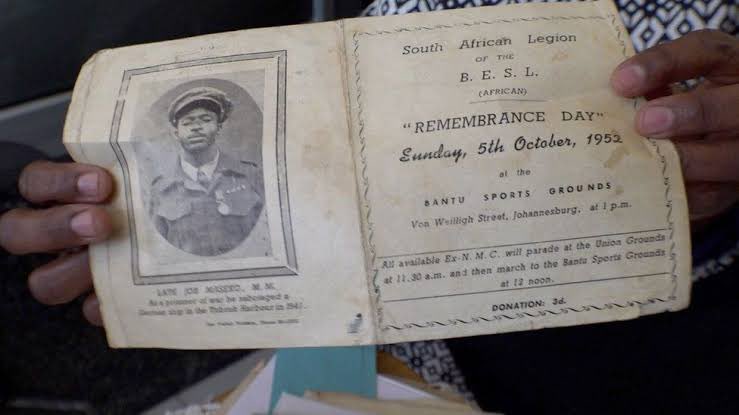 LATE JOB MASEKO, M. M.
As a prisoner of war he sabotaged a
German ship in the Tobruk Harbour in 1942.
South African Legion
OF THE
B. E. S. L.
(AFRICAN)
"REMEMBRANCE DAY"
Sunday, 5th October, 1952
at the
BANTU SPORTS GROUNDS
Von Weilligh Street, Johannesburg, at 1 p.m.
All available Ex-N. M. C. will parade at the Union Grounds
at 11.30 a.m. and then march to the Bantu Sports Grounds
at 12 noon.
DONATION: 3d.